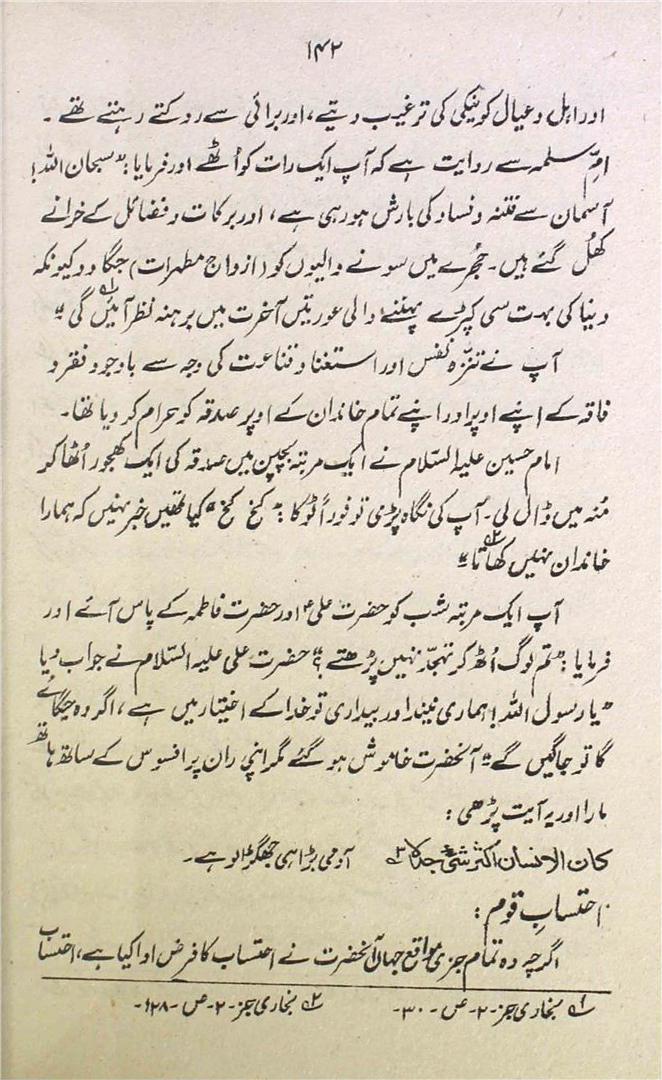 ۱۴۲
اور اہل و عیال کو نیکی کی ترغیب دیتے، اور برائی سے روکتے رہتے تھے۔
امِّ سلمہ سے روایت ہے کہ آپ ایک رات کو اُٹھے اور فرمایا: "سبحان اللہ!
آسمان سے فتنہ و فساد کی بارش ہو رہی ہے، اور برکات و فضائل کے خزانے
کھُل گئے ہیں۔ حجُرے میں سونے والیوں کو (ازواجِ مطہرات) جگا دو کیونکہ
دنیا کی بہت سی کپڑے پہننے والی عورتیں آخرت میں برہنہ نظر آئیں گی"۱؎
آپ نے تنزّہ نفس اور استغنا و قناعت کی وجہ سے باوجود فقر و
فاقہ کے اپنے اوپر اور اپنے تمام خاندان کے اوپر صدقہ کو حرام کر دیا تھا۔
امام حسین علیہ السّلام نے ایک مرتبہ بچپن میں صدقہ کی ایک کھجور اُٹھا کر
مُنہ میں ڈال لی۔ آپ کی نگاہ پڑی تو فوراً ٹوکا: "کخ کخ" کیا تمھیں خبر نہیں کہ ہمارا
خاندان نہیں کھاتا"۲؎
آپ ایک مرتبہ شب کو حضرت علیؑ اور حضرت فاطمہ کے پاس آئے اور
فرمایا: "تم لوگ اُٹھ کر تہجّد نہیں پڑھتے؟" حضرت علی علیہ السّلام نے جواب دیا
"یا رسول اللہ! ہماری نیند اور بیداری تو خدا کے اختیار میں ہے، اگر وہ جگائے
گا تو جاگیں گے" آنحضرت خاموش ہو گئے مگر اپنی ران پر افسوس کے ساتھ ہاتھ
مارا اور یہ آیت پڑھی:
کان الانسان اکثر شئ جدلا۳؎ آدمی بڑا ہی جھگڑالو ہے۔
احتسابِ قوم:
اگرچہ وہ تمام جزئی مواقع جہاں آنحضرت نے احتساب کا فرض ادا کیا ہے، احتساب
۱؎ بخاری جز۔۲۔ص۔۳۰۔ ۲؎ بخاری جز۔۲۔ص۔۱۲۸۔